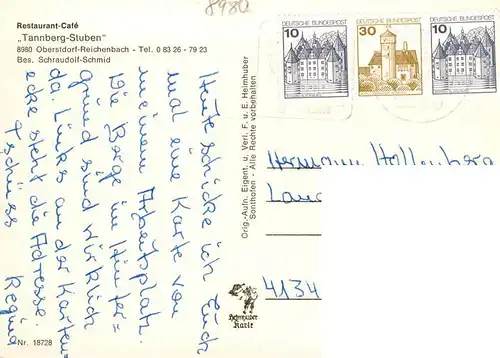 8980
Restaurant-Café
„Tannberg-Stuben"
8980 Oberstdorf-Reichenbach - Tel. 0 83 26 - 79 23
Bes. Schraudolf-Schmid
Heute schicke ich Euch
mal eine Karte von
meinem Arbeitsplatz.
Die Berge im Hinter=
grund sind wirklich
da. Links an der Karten-
ecke steht die Adresse.
Tschüss
Regina
Nr. 18728
Orig.-Aufn. Eigent. u. Verl. F. u. E. Heimhuber
Sonthofen - Alle Rechte vorbehalten
Heimhuber
Karte
10 DEUTSCHE BUNDESPOST
30 DEUTSCHE BUNDESPOST
10 DEUTSCHE BUNDESPOST
Hermann
4134